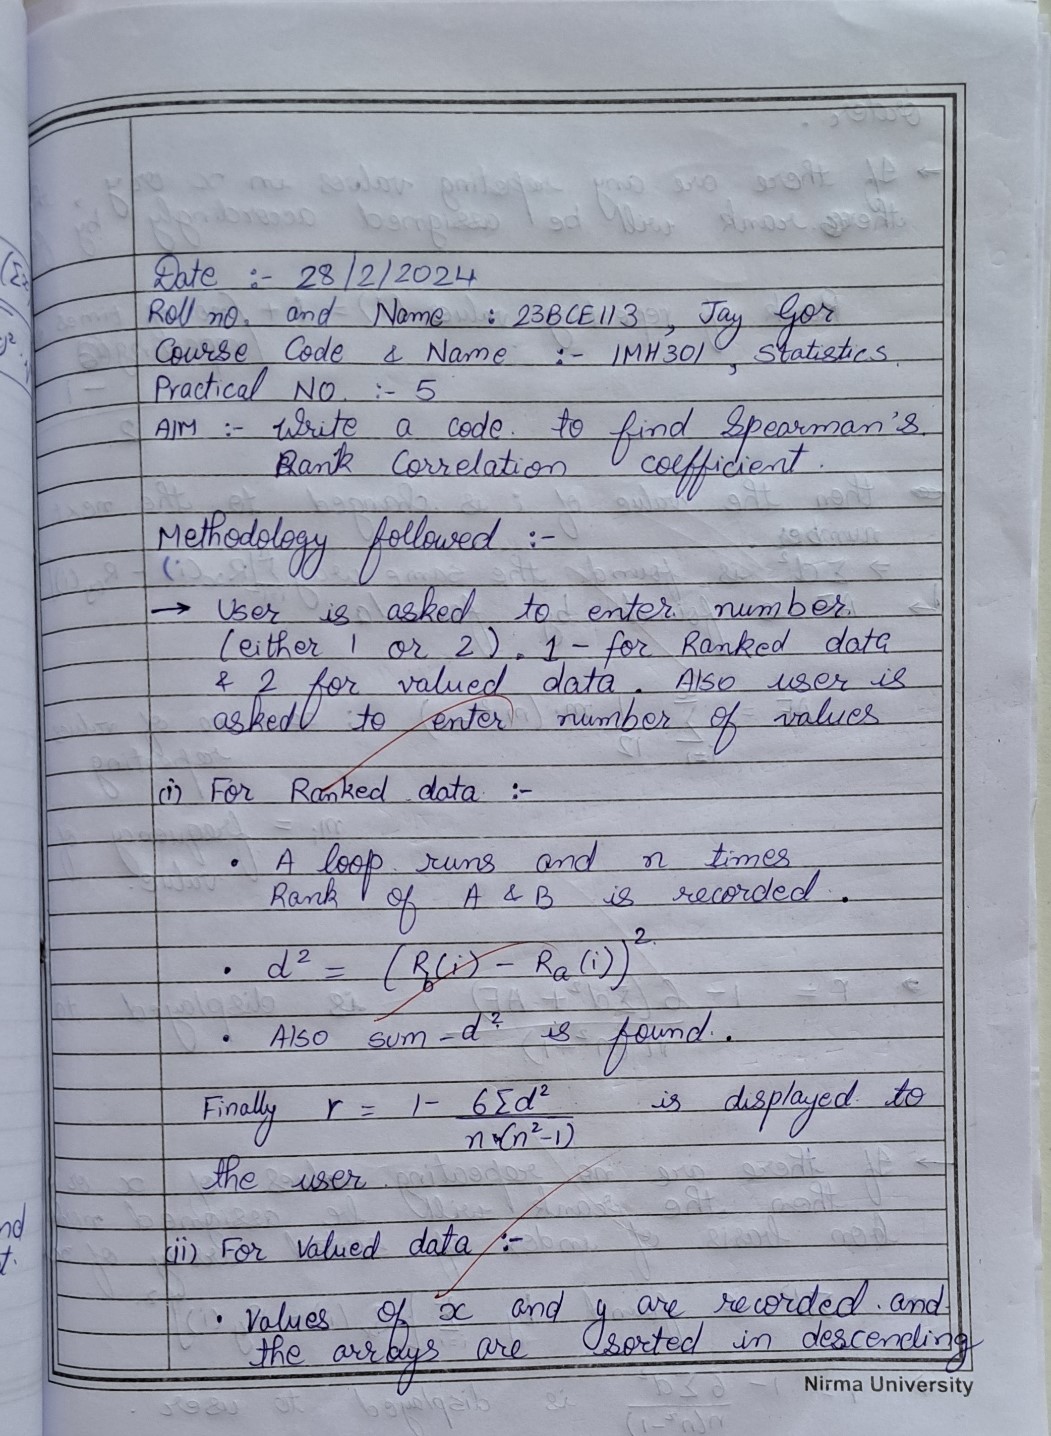 Date :- 28/2/2024
Roll no. and Name : 23BCE113, Jay Gor
Course Code & Name :- 1MH301, Statistics.
Practical NO. :- 5
AIM :- Write a code. to find Spearman's.
Rank Correlation coefficient.
Methodology followed :-
(i
→ User is asked to enter number.
(either 1 or 2). 1 - for Ranked data
& 2 for valued data. Also user is
asked to enter number of values
(i) For Ranked data :-
• A loop runs and n times
Rank of A & B is recorded.
• d² = (Rb(i) - Ra(i))²
• Also sum-d² is found.
Finally r = 1 - 6Σd² / n(n²-1) is displayed to
the user.
(ii) For Valued data :-
• Values of x and y are recorded. and
the arrays are sorted in descending
Nirma University